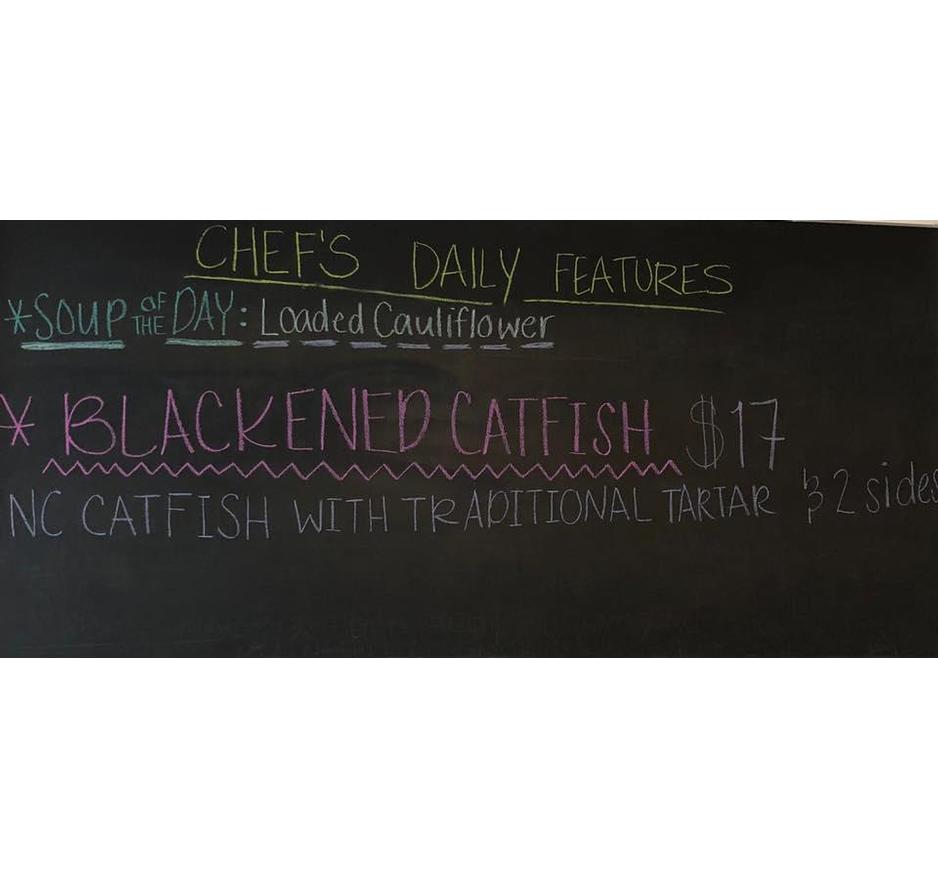 CHEF'S DAILY FEATURES
*SOUP OF THE DAY: Loaded Cauliflower
* BLACKENED CATFISH $17
NC CATFISH WITH TRADITIONAL TARTAR & 2 sides